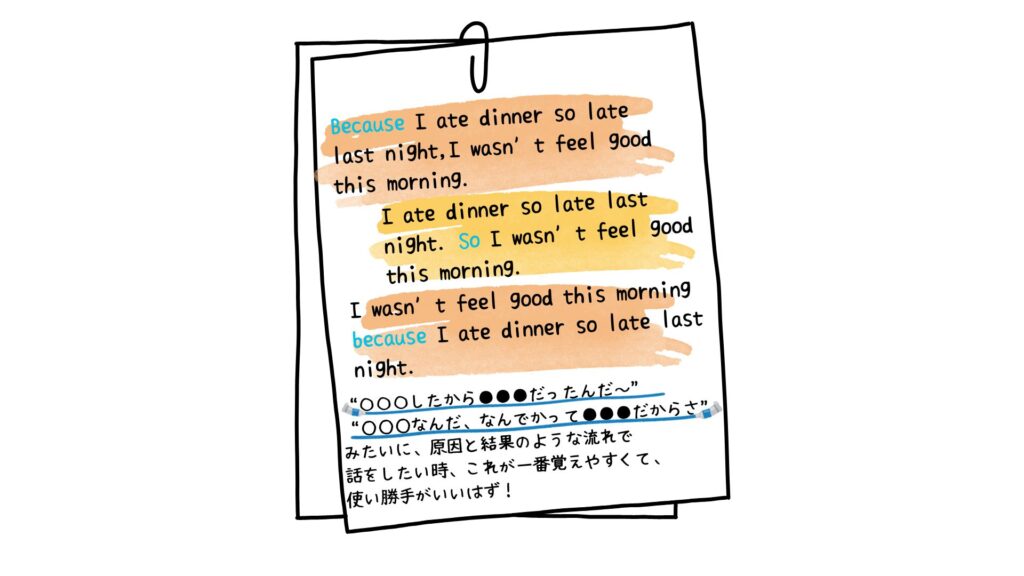 Because I ate dinner so late
last night,I wasn't feel good
this morning.
I ate dinner so late last
night. So I wasn't feel good
this morning.
I wasn't feel good this morning
because I ate dinner so late last
night.
“○○○したから●●●だったんだ〜”
“○○○なんだ、なんでかって●●●だからさ”
みたいに、原因と結果のような流れで
話をしたい時、これが一番覚えやすくて、
使い勝手がいいはず！